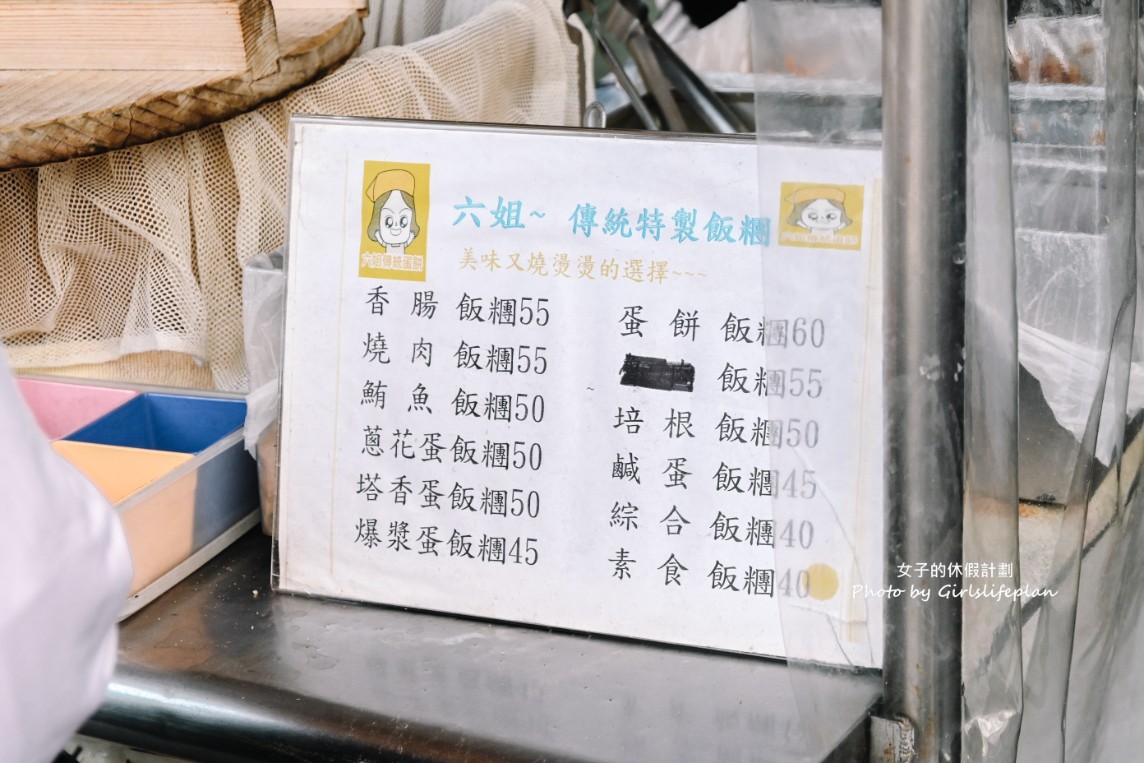 六姐~ 傳統特製飯糰
美味又燒燙燙的選擇~~~
六姐傳統蛋餅
香腸飯糰55
燒肉飯糰55
鮪魚飯糰50
蔥花蛋飯糰50
塔香蛋飯糰50
爆漿蛋飯糰45
蛋餅飯糰60
飯糰55
培根飯糰50
鹹蛋飯糰45
綜合飯糰40
素食飯糰40
女子的休假計劃
Photo by Girlslifeplan